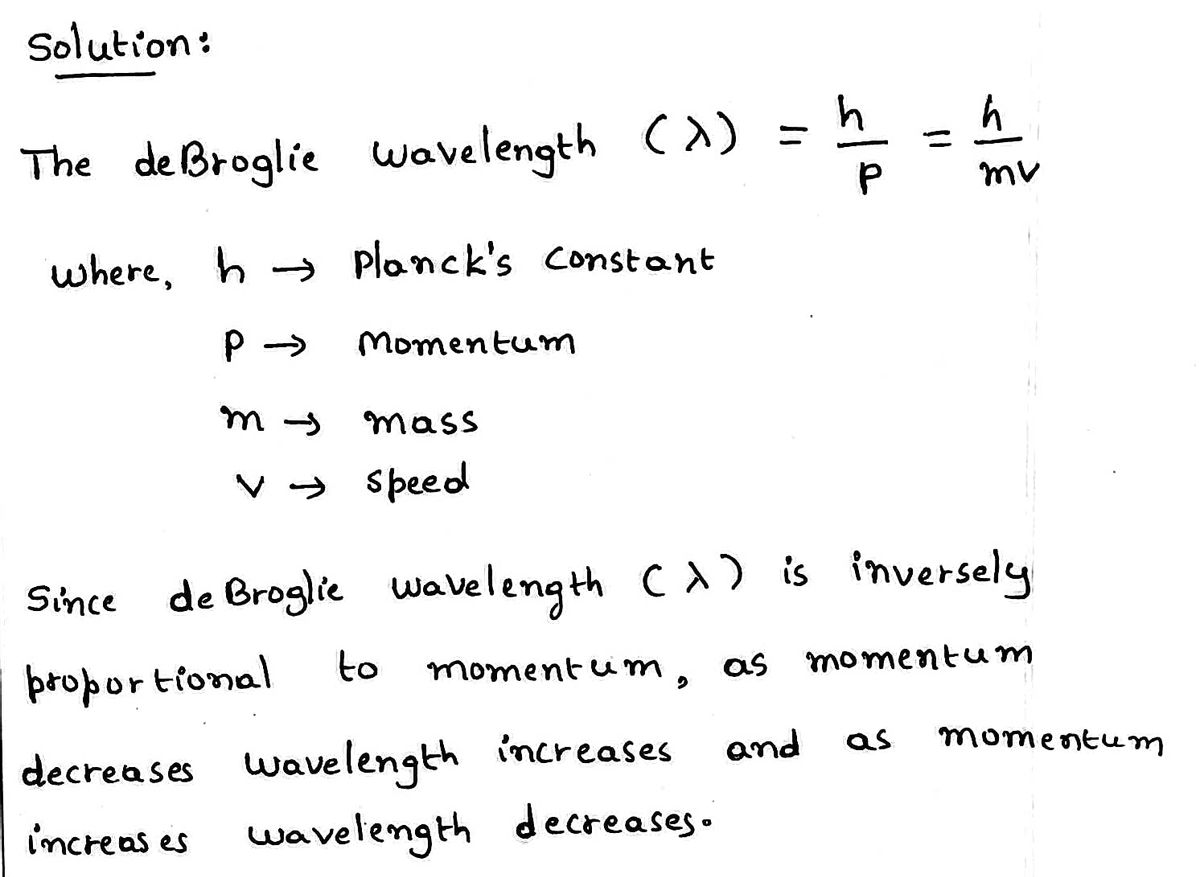 Solution:
The deBroglie wavelength (λ) = h/p = h/mv
where, h → Planck's constant
p → Momentum
m → mass
v → speed
Since deBroglie wavelength (λ) is inversely
proportional to momentum, as momentum
decreases wavelength increases and as momentum
increases wavelength decreases.